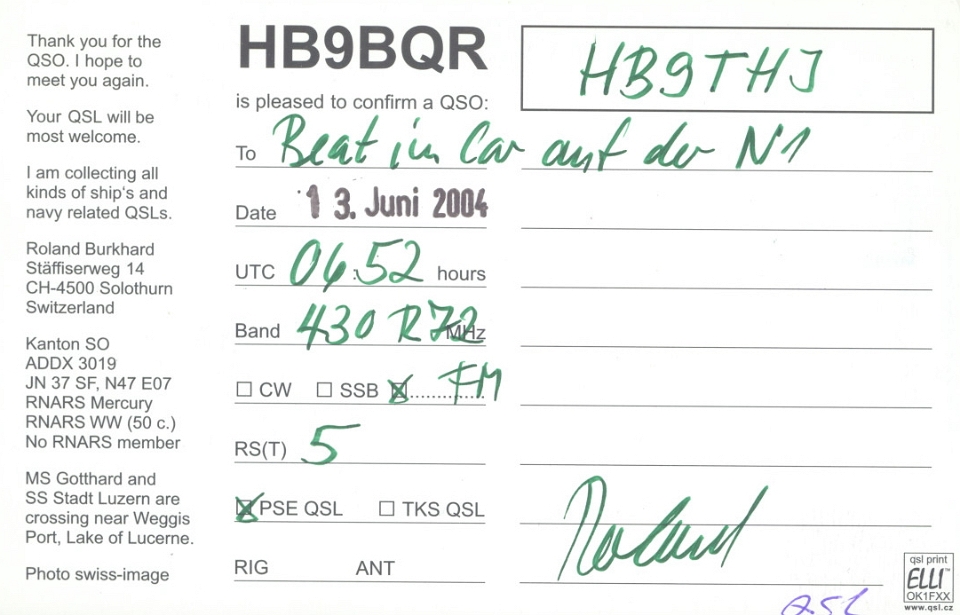 Thank you for the
QSO. I hope to
meet you again.
Your QSL will be
most welcome.
I am collecting all
kinds of ship's and
navy related QSLs.
Roland Burkhard
Stäffiserweg 14
CH-4500 Solothurn
Switzerland
Kanton SO
ADDX 3019
JN 37 SF, N47 E07
RNARS Mercury
RNARS WW (50 c.)
No RNARS member
MS Gotthard and
SS Stadt Luzern are
crossing near Weggis
Port, Lake of Lucerne.
Photo swiss-image
HB9BQR
is pleased to confirm a QSO:
HB9THJ
To Beat im Car auf der N1
Date 13. Juni 2004
UTC 06:52 hours
Band 430 R72 MHz
CW SSB FM
RS(T) 5
PSE QSL TKS QSL
Roland
RIG ANT
QSL
qsl print
ELLI™
OK1FXX
www.qsl.cz